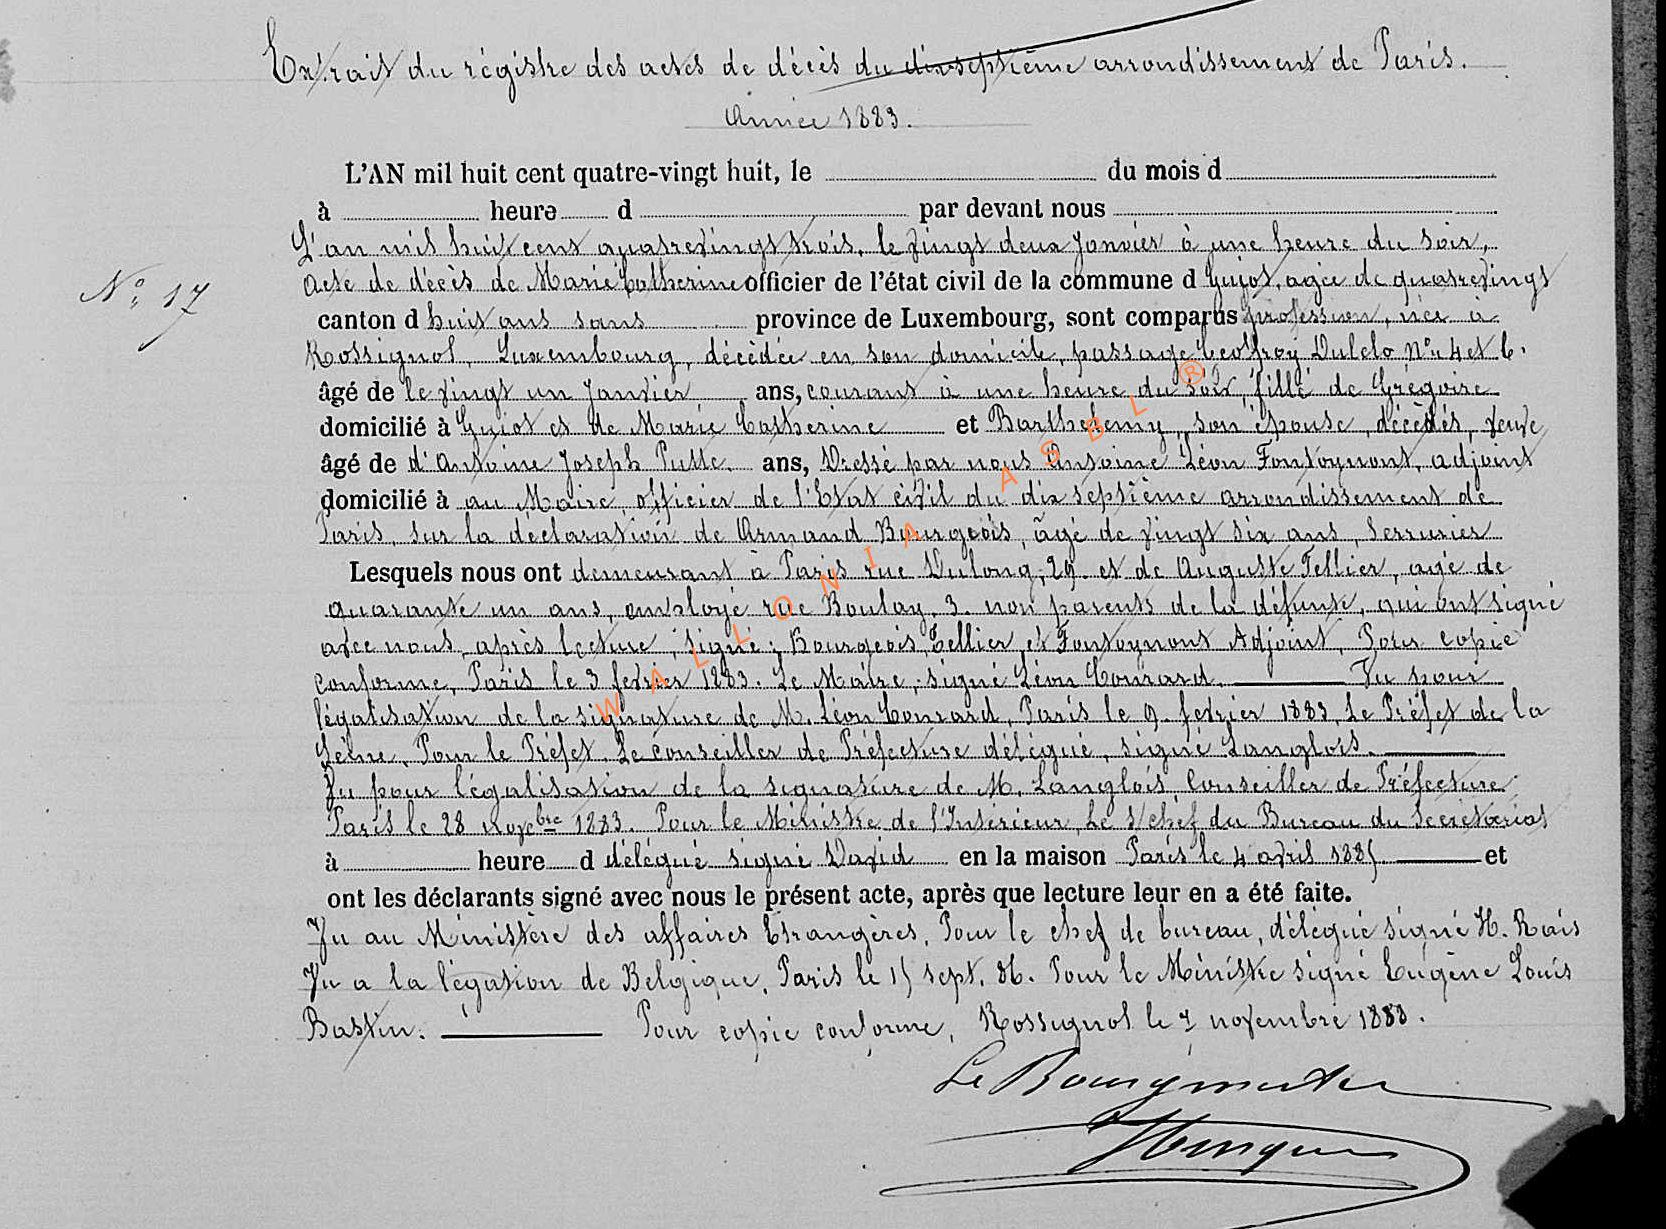 Extrait du régistre des actes de décès du dix septième arrondissement de Paris.
Année 1883.
L'AN mil huit cent quatre-vingt huit, le du mois d
à heure d par devant nous
L'an mil huit cent quatrevingt trois, le vingt deux Janvier à une heure du soir,
N° 17
Acte de décès de Marie Catherine officier de l'état civil de la commune d Gujot, agée de quatrevingt
canton d huit ans sans province de Luxembourg, sont comparus profession, née à
Rossignol, Luxembourg, décèdée en son domicile, passage Geoffroy Dulelo Nos 4 et 6.
âgé de le vingt un Janvier ans, courant à une heure du soir, fille de Grégoire
domicilié à Gujot et de Marie Catherine et Barthelemy, son épouse, décèdés, veuve
âgé de d'Antoine Joseph Putte. ans, Dressé par nous Antoine Léon Fontoynont, adjoint
domicilié à au Maire, officier de l'Etat civil du dix septième arrondissement de
Paris, sur la déclaration de Armand Bourgeois, âgé de vingt six ans, Serrurier
Lesquels nous ont demeurant à Paris rue Dulong, 29. et de Auguste Tellier, agé de
quarante un ans, employé rue Boulay, 3. non parents de la défunte, qui ont signé
avec nous, après lecture, signé: Bourgeois, Tellier et Fontoynont Adjoint, Pour copie
conforme, Paris le 3 fevrier 1883. Le Maire, signé Léon Conrard. Vu pour
légalisation de la signature de M. Léon Conrard, Paris le 9. fevrier 1883, Le Préfet de la
Seine, Pour le Préfet, Le Conseiller de Préfecture délégué, signé Langlois.
Vu pour légalisation de la signature de M. Langlois Conseiller de Préfecture
Paris le 28 novebre 1883. Pour le Ministre de l'Intérieur, Le s/chef du Bureau du Secrétariat
à heure d délégué signé David en la maison Paris le 4 avril 1885 et
ont les déclarants signé avec nous le présent acte, après que lecture leur en a été faite.
Vu au Ministère des affaires Etrangères, Pour le chef de bureau, délégué signé H. Rais
Vu a la légation de Belgique, Paris le 15 sept. 86. Pour le Ministre signé Eugène Louis
Bastin. Pour copie conforme, Rossignol le 7 novembre 1888.
Le Bourgmestre
WALLONIA ASBL ®